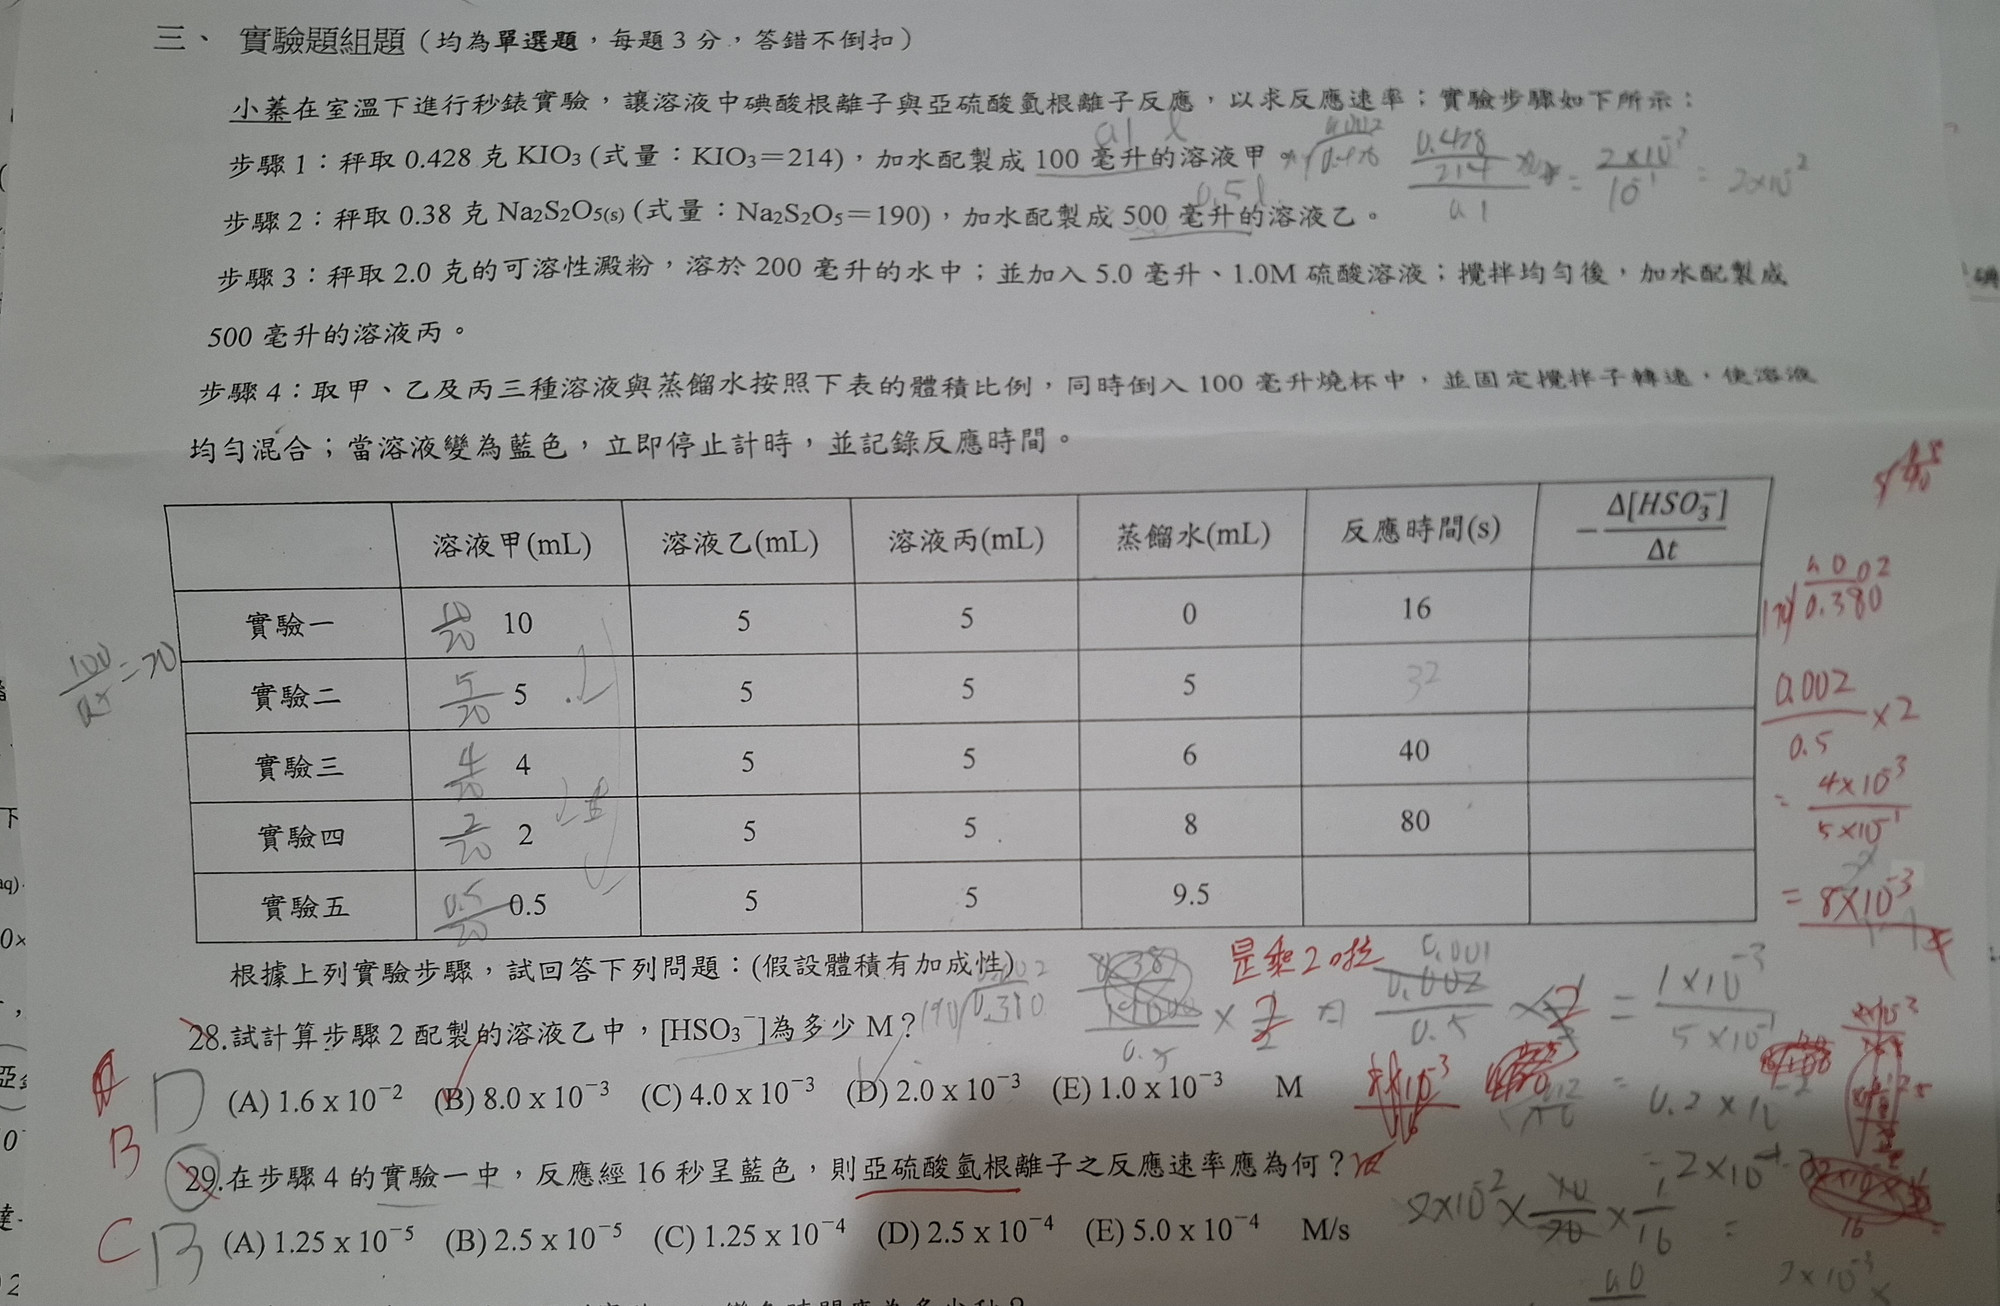 三、 實驗題組題（均為單選題，每題3分，答錯不倒扣）
小蓁在室溫下進行秒錶實驗，讓溶液中碘酸根離子與亞硫酸氫根離子反應，以求反應速率；實驗步驟如下所示：
步驟1：秤取 0.428 克 KIO₃ (式量：KIO₃＝214)，加水配製成 100 毫升的溶液甲
步驟2：秤取 0.38 克 Na₂S₂O₅(s) (式量：Na₂S₂O₅＝190)，加水配製成 500 毫升的溶液乙。
步驟3：秤取 2.0 克的可溶性澱粉，溶於 200 毫升的水中；並加入 5.0 毫升、1.0M 硫酸溶液；攪拌均勻後，加水配製成
500 毫升的溶液丙。
步驟4：取甲、乙及丙三種溶液與蒸餾水按照下表的體積比例，同時倒入 100 毫升燒杯中，並固定攪拌子轉速，使溶液
均勻混合；當溶液變為藍色，立即停止計時，並記錄反應時間。
溶液甲(mL) 溶液乙(mL) 溶液丙(mL) 蒸餾水(mL) 反應時間(s) −Δ[HSO₃⁻]/Δt
實驗一 10/20 10 5 5 0 16
100/0.5=20 實驗二 5/20 5 5 5 5 32
實驗三 4/20 4 5 5 6 40
實驗四 2/20 2 5 5 8 80
實驗五 0.5/20 0.5 5 5 9.5
0.002/0.5 ×2
= 4×10⁻³/5×10⁻¹
= 8×10⁻³
根據上列實驗步驟，試回答下列問題：(假設體積有加成性)
是乘2啦
28.試計算步驟2配製的溶液乙中，[HSO₃⁻]為多少 M？
D (A) 1.6 x 10⁻² (B) 8.0 x 10⁻³ (C) 4.0 x 10⁻³ (D) 2.0 x 10⁻³ (E) 1.0 x 10⁻³ M
B
29.在步驟4的實驗一中，反應經16秒呈藍色，則亞硫酸氫根離子之反應速率應為何？
C B (A) 1.25 x 10⁻⁵ (B) 2.5 x 10⁻⁵ (C) 1.25 x 10⁻⁴ (D) 2.5 x 10⁻⁴ (E) 5.0 x 10⁻⁴ M/s